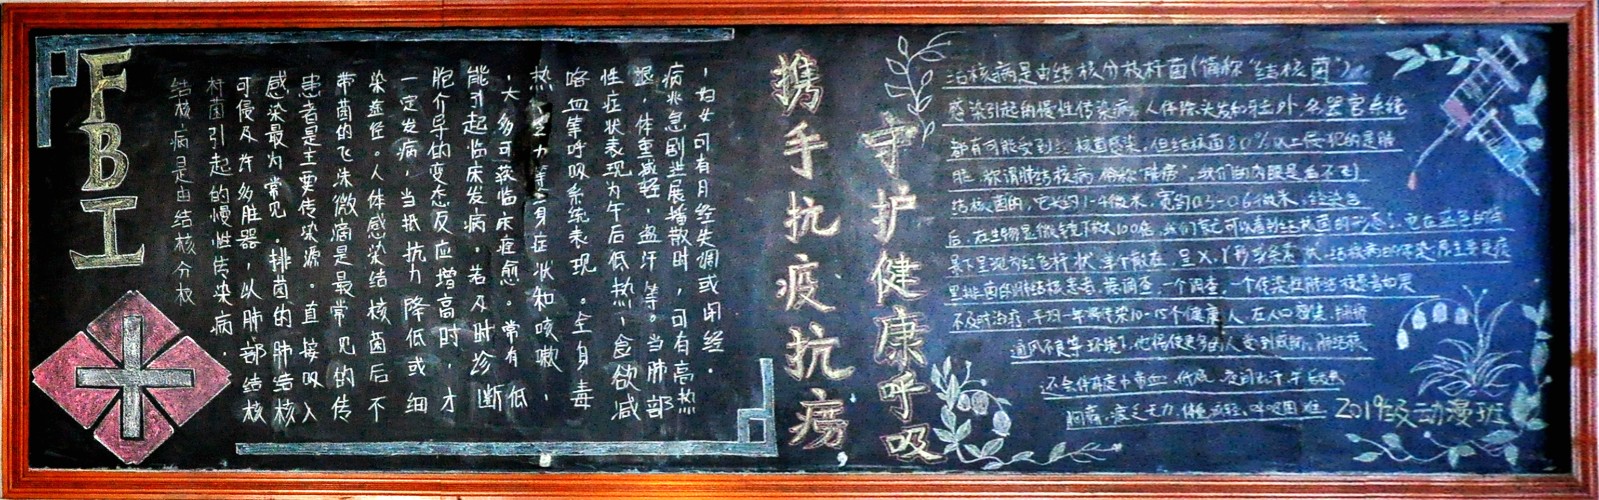 FBI
结核病是由结核分枝
杆菌引起的慢性传染病,
可侵及许多脏器,以肺部结核
感染最为常见.排菌的肺结核
患者是主要传染源。直接吸入
带菌的飞沫微滴是最常见的传
染途径。人体感染结核菌后不
一定发病,当抵抗力降低或细
胞介导的变态反应增高时,才
能引起临床发病.若及时诊断
,大多可获临床痊愈。常有低
热、乏力等全身症状和咳嗽、
咯血等呼吸系统表现。全身毒
性症状表现为午后低热、食欲减
退,体重减轻,盗汗等。当肺部
病兆急剧进展播散时,可有高热
,妇女可有月经失调或闭经.
携手抗疫抗痨,
守护健康呼吸
结核病是由结核分枝杆菌(简称"结核菌")
感染引起的慢性传染病,人体除头发和牙齿外各器官系统
都有可能受到结核菌感染,但结核菌80%以上侵犯的是肺
脏,称谓肺结核病,俗称"肺痨",我们的肉眼是看不到
结核菌的,它长约1-4微米,宽约0.3-0.6微米,经染色
后,在生物显微镜下放大100倍,我们就可以看到结核菌的形态,它在蓝色的背
景下呈现为红色杆状,单个散在,呈X、Y形或条索状.结核病的传染原主要是痰
里排菌的肺结核患者,据调查,一个调查,一个传染性肺结核患者如果
不及时治疗,平均一年能传染10-15个健康人,在人口密集,拥挤
通风不良等环境下,也将使更多的人受到威胁,肺结核
还会伴有痰中带血,低烧,夜间出汗,午后发热
胸痛,疲乏无力,体重减轻,呼吸困难
2019级动漫班